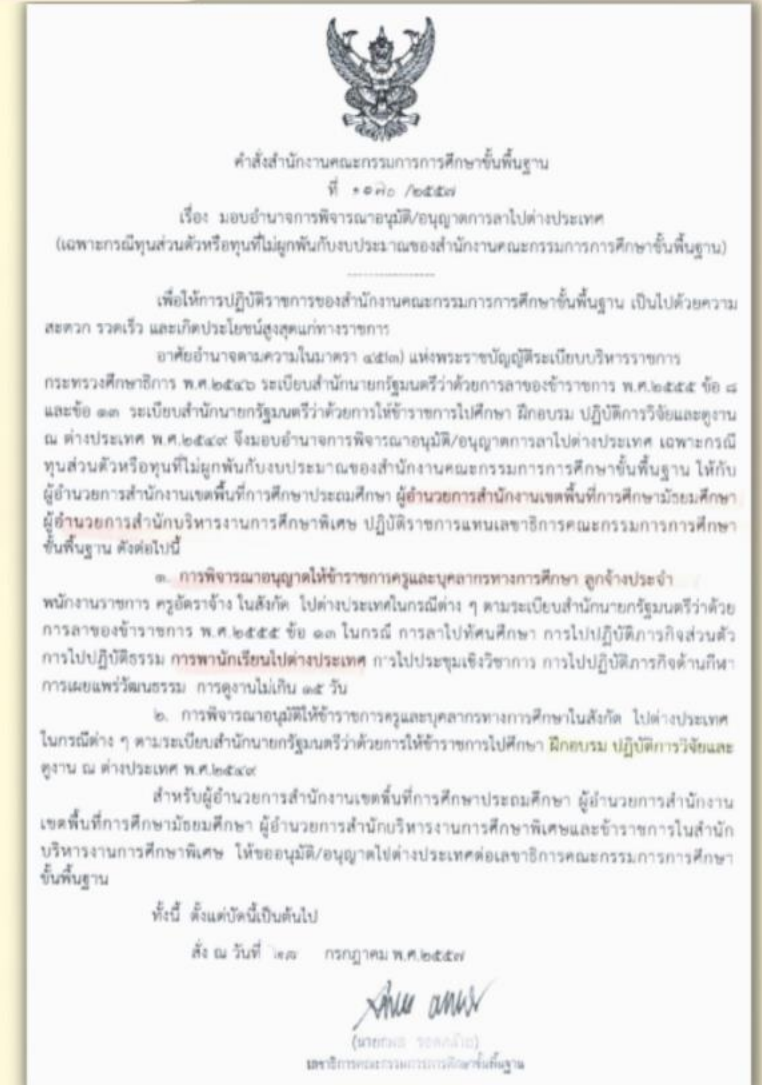 คำสั่งสำนักงานคณะกรรมการการศึกษาขั้นพื้นฐาน
ที่ /๒๕๕๗
เรื่อง มอบอำนาจการพิจารณาอนุมัติ/อนุญาตการลาไปต่างประเทศ
(เฉพาะกรณีทุนส่วนตัวหรือทุนที่ไม่ผูกพันกับงบประมาณของสำนักงานคณะกรรมการการศึกษาขั้นพื้นฐาน)
เพื่อให้การปฏิบัติราชการของสำนักงานคณะกรรมการการศึกษาขั้นพื้นฐาน เป็นไปด้วยความ
สะดวก รวดเร็ว และเกิดประโยชน์สูงสุดแก่ทางราชการ
อาศัยอำนาจตามความในมาตรา ๔๕(๓) แห่งพระราชบัญญัติระเบียบบริหารราชการ
กระทรวงศึกษาธิการ พ.ศ.๒๕๔๖ ระเบียบสำนักนายกรัฐมนตรีว่าด้วยการลาของข้าราชการ พ.ศ.๒๕๕๕ ข้อ ๘
และข้อ ๑๓ ระเบียบสำนักนายกรัฐมนตรีว่าด้วยการให้ข้าราชการไปศึกษา ฝึกอบรม ปฏิบัติการวิจัยและดูงาน
ณ ต่างประเทศ พ.ศ.๒๕๔๙ จึงมอบอำนาจการพิจารณาอนุมัติ/อนุญาตการลาไปต่างประเทศ เฉพาะกรณี
ทุนส่วนตัวหรือทุนที่ไม่ผูกพันกับงบประมาณของสำนักงานคณะกรรมการการศึกษาขั้นพื้นฐาน ให้กับ
ผู้อำนวยการสำนักงานเขตพื้นที่การศึกษาประถมศึกษา ผู้อำนวยการสำนักงานเขตพื้นที่การศึกษามัธยมศึกษา
ผู้อำนวยการสำนักบริหารงานการศึกษาพิเศษ ปฏิบัติราชการแทนเลขาธิการคณะกรรมการการศึกษา
ขั้นพื้นฐาน ดังต่อไปนี้
๑. การพิจารณาอนุญาตให้ข้าราชการครูและบุคลากรทางการศึกษา ลูกจ้างประจำ
พนักงานราชการ ครูอัตราจ้าง ในสังกัด ไปต่างประเทศในกรณีต่าง ๆ ตามระเบียบสำนักนายกรัฐมนตรีว่าด้วย
การลาของข้าราชการ พ.ศ.๒๕๕๕ ข้อ ๑๓ ในกรณี การลาไปทัศนศึกษา การไปปฏิบัติภารกิจส่วนตัว
การไปปฏิบัติธรรม การพานักเรียนไปต่างประเทศ การไปประชุมเชิงวิชาการ การไปปฏิบัติภารกิจด้านกีฬา
การเผยแพร่วัฒนธรรม การดูงานไม่เกิน ๑๕ วัน
๒. การพิจารณาอนุมัติให้ข้าราชการครูและบุคลากรทางการศึกษาในสังกัด ไปต่างประเทศ
ในกรณีต่าง ๆ ตามระเบียบสำนักนายกรัฐมนตรีว่าด้วยการให้ข้าราชการไปศึกษา ฝึกอบรม ปฏิบัติการวิจัยและ
ดูงาน ณ ต่างประเทศ พ.ศ.๒๕๔๙
สำหรับผู้อำนวยการสำนักงานเขตพื้นที่การศึกษาประถมศึกษา ผู้อำนวยการสำนักงาน
เขตพื้นที่การศึกษามัธยมศึกษา ผู้อำนวยการสำนักบริหารงานการศึกษาพิเศษและข้าราชการในสำนัก
บริหารงานการศึกษาพิเศษ ให้ขออนุมัติ/อนุญาตไปต่างประเทศต่อเลขาธิการคณะกรรมการการศึกษา
ขั้นพื้นฐาน
ทั้งนี้ ตั้งแต่บัดนี้เป็นต้นไป
สั่ง ณ วันที่ กรกฎาคม พ.ศ.๒๕๕๗
เลขาธิการคณะกรรมการการศึกษาขั้นพื้นฐาน